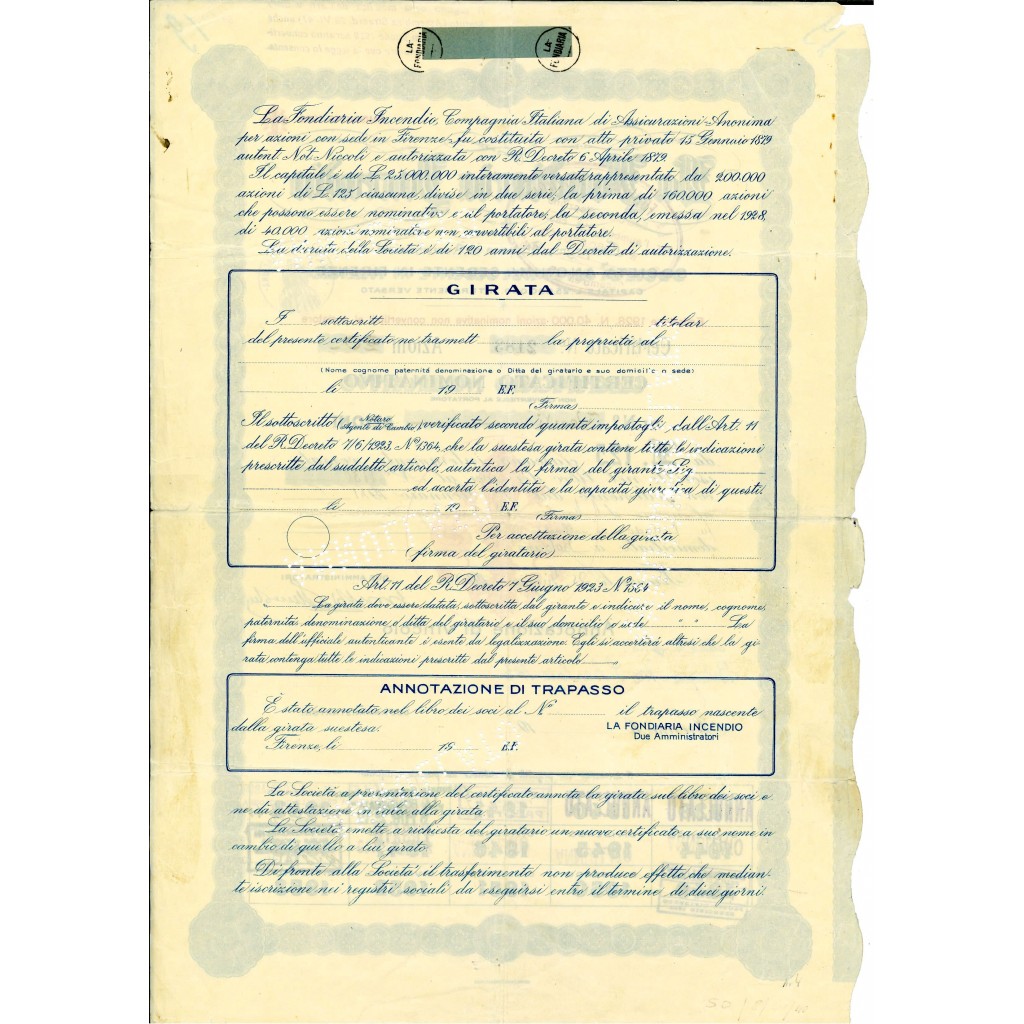 LA FONDIARIA
LA FONDIARIA
La Fondiaria Incendio, Compagnia Italiana di Assicurazioni Anonima
per azioni con sede in Firenze, fu costituita con atto privato 15 Gennaio 1879
autent. Not. Niccoli e autorizzata con R. Decreto 6 Aprile 1879.
Il capitale è di £ 25.000.000 interamente versato, rappresentato da 200.000
azioni di £. 125 ciascuna, divise in due serie; la prima di 160.000 azioni
che possono essere nominative e al portatore; la seconda, emessa nel 1928,
di 40.000 azioni nominative non convertibili al portatore.
La durata della Società è di 120 anni dal Decreto di autorizzazione.
GIRATA
I sottoscritt titolar
del presente certificato ne trasmett la proprietà al
(Nome cognome paternità denominazione o Ditta del giratario e suo domicilio o sede)
lì 19 E.F.
(Firma)
Il sottoscritto (Notaro Agente di Cambio), verificato secondo quanto impostogli dall'Art. 11
del R. Decreto 7/6/1923, N.° 1364, che la suestesa girata contiene tutte le indicazioni
prescritte dal suddetto articolo, autentica la firma del girante Sig.
ed accerta l'identità e la capacità giuridica di questi.
lì 19 E.F.
(Firma)
Per accettazione della girata
(firma del giratario)
Art. 11 del R. Decreto 7 Giugno 1923 N.° 1364
La girata deve essere datata, sottoscritta dal girante e indicare il nome, cognome,
paternità denominazione o ditta del giratario e il suo domicilio o sede " " La
firma dell'ufficiale autenticante è esente da legalizzazione. Egli si accerterà altresì che la gi
rata contenga tutte le indicazioni prescritte dal presente articolo
ANNOTAZIONE DI TRAPASSO
È stato annotato nel libro dei soci al N.° il trapasso nascente
dalla girata suestesa.
LA FONDIARIA INCENDIO
Due Amministratori
Firenze, lì 19 E.F.
La Società a presentazione del certificato annota la girata sul libro dei soci e
ne dà attestazione in calce alla girata
La Società emette a richiesta del giratario un nuovo certificato a suo nome in
cambio di quello a lui girato.
Di fronte alla Società il trasferimento non produce effetto che median-
te iscrizione nei registri sociali da eseguirsi entro il termine di dieci giorni.